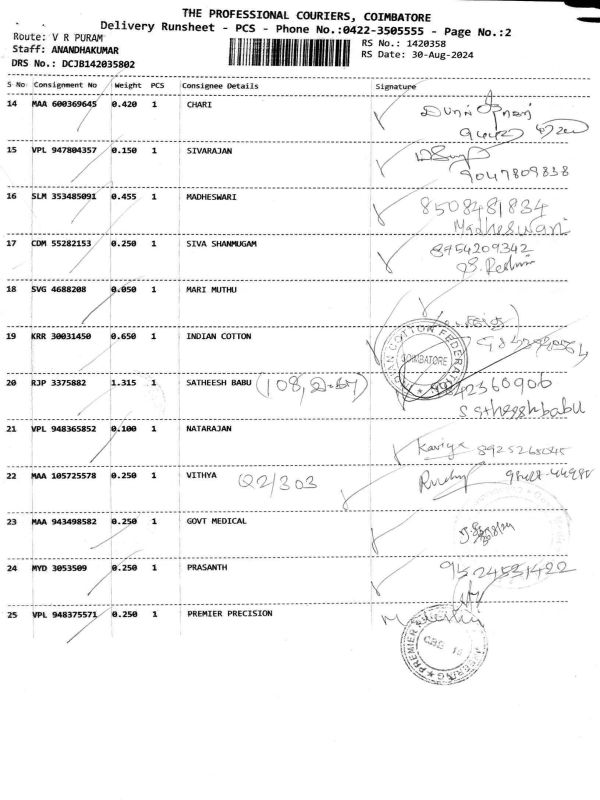 THE PROFESSIONAL COURIERS, COIMBATORE
Delivery Runsheet - PCS - Phone No.:0422-3505555 - Page No.:2
Route: V R PURAM
RS No.: 1420358
Staff: ANANDHAKUMAR
RS Date: 30-Aug-2024
DRS No.: DCJB142035802
S No Consignment No Weight PCS Consignee Details Signature
14 MAA 600369645 0.420 1 CHARI
15 VPL 947804357 0.150 1 SIVARAJAN
9047809838
16 SLM 353485091 0.455 1 MADHESWARI 8508481834
Madheswari
17 CDM 55282153 0.250 1 SIVA SHANMUGAM 8954209342
18 SVG 4688208 0.050 1 MARI MUTHU
19 KRR 30031450 0.650 1 INDIAN COTTON
COTTON FEDERAT
COIMBATORE
20 RJP 3375882 1.315 1 SATHEESH BABU 42360906
21 VPL 948365852 0.100 1 NATARAJAN
Kaviya
22 MAA 105725578 0.250 1 VITHYA Q2/303
23 MAA 943498582 0.250 1 GOVT MEDICAL
24 MYD 3053509 0.250 1 PRASANTH 9524531422
25 VPL 948375571 0.250 1 PREMIER PRECISION
PREMIER